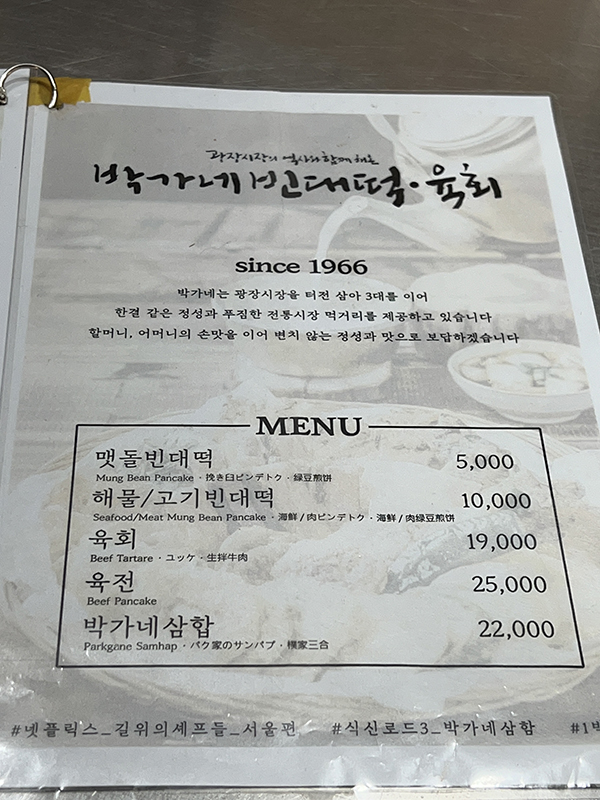 광장시장의 역사와 함께 하는
박가네 빈대떡·육회
since 1966
박가네는 광장시장을 터전 삼아 3대를 이어
한결 같은 정성과 푸짐한 전통시장 먹거리를 제공하고 있습니다
할머니, 어머니의 손맛을 이어 변치 않는 정성과 맛으로 보답하겠습니다
MENU
맷돌빈대떡 5,000
Mung Bean Pancake · 挽き臼ピンデトク · 緑豆煎饼
해물/고기빈대떡 10,000
Seafood/Meat Mung Bean Pancake · 海鮮/肉ピンデトク · 海鮮/肉緑豆煎餅
육회 19,000
Beef Tartare · ユッケ · 生拌牛肉
육전 25,000
Beef Pancake
박가네삼합 22,000
Parkgane Samhap · パク家のサンパブ · 樸家三合
#넷플릭스_길위의셰프들_서울편 #식신로드3_박가네삼합